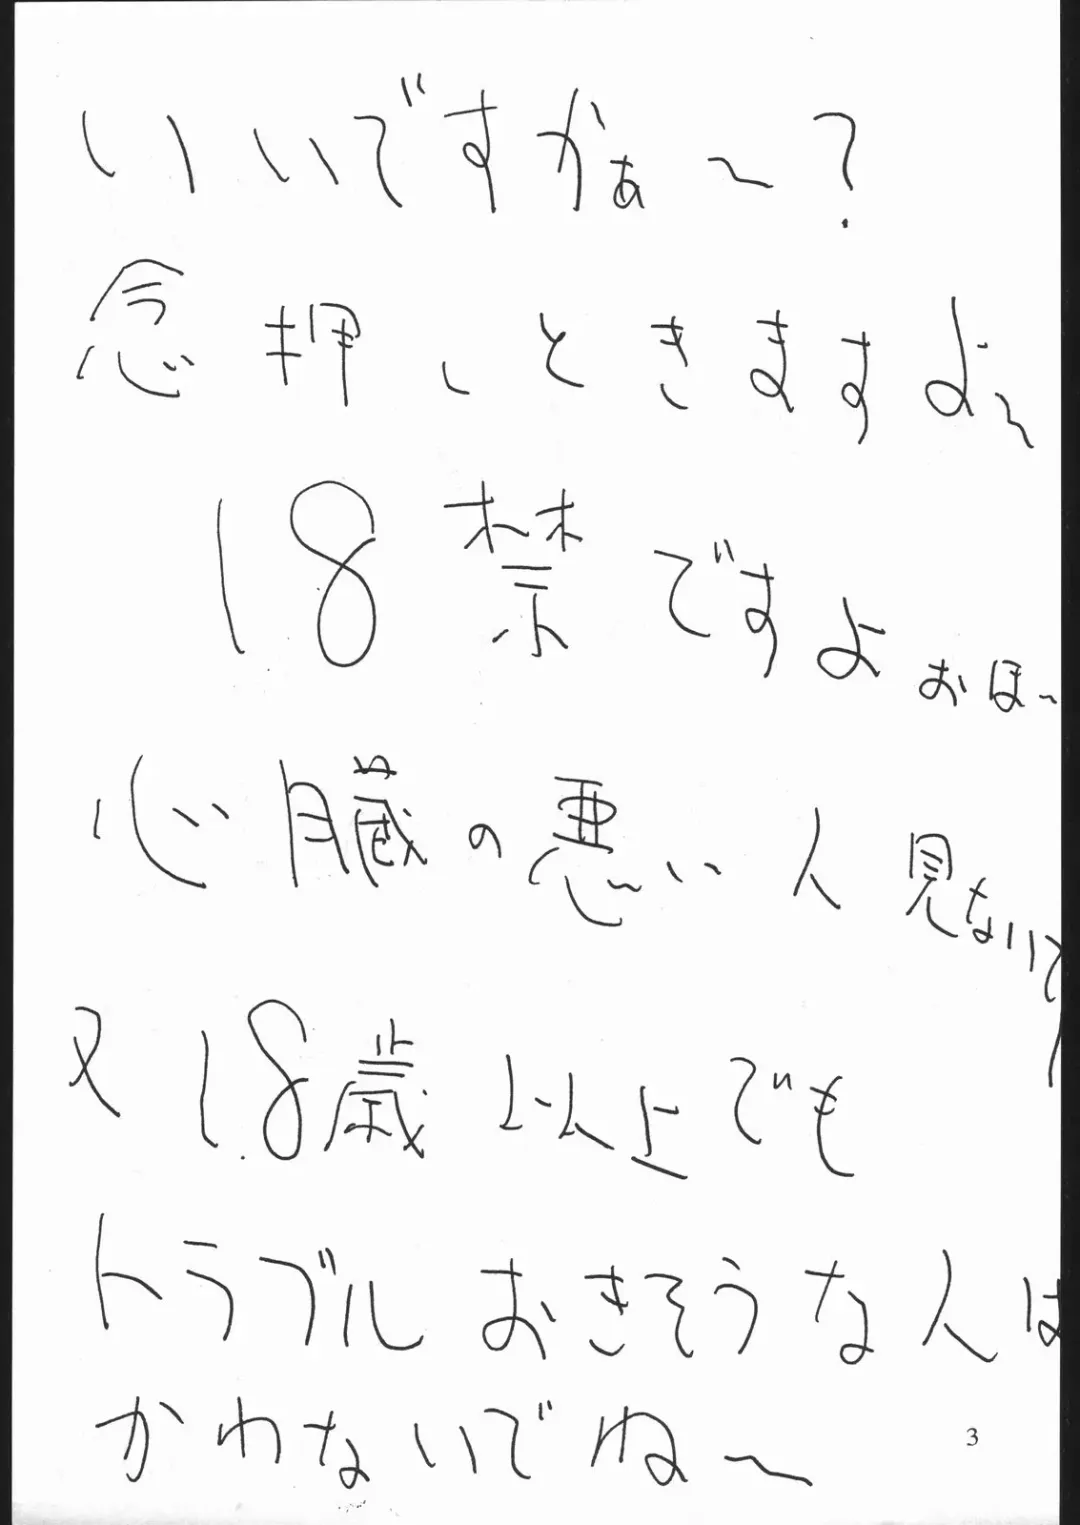 いいですかぁ〜?
念押しときますよ〜
18禁ですよ おほ〜
心臓の悪い人見ないで
又18歳以上でも
トラブルおきそうな人は
かわないでね〜
3